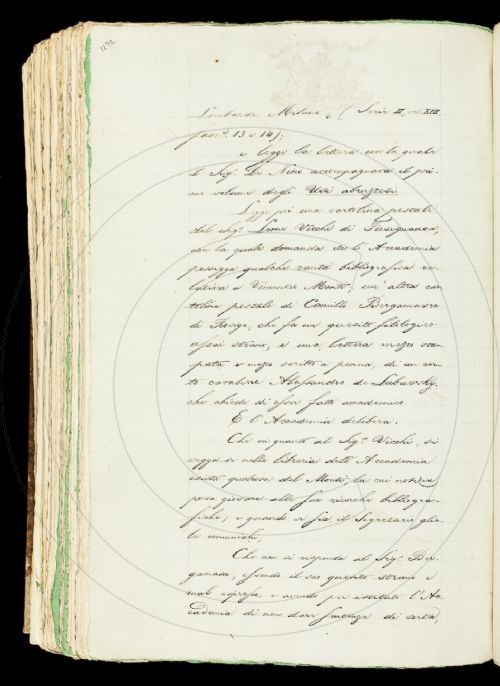 1292
Lombardo Milano, (Serie II, vol. XIII,
fasc.i 13 e 14);
e leggo la lettera con la quale
il Sig.r De Nino accompagnava il pri-
mo volume degli Usi abruzzesi.
Leggo poi una cartolina postale
del Sig.r Leone Vicchi di Fusignano,
con la quale domanda se l'Accademia
possegga qualche rarità bibliografica re-
lativa a Vincenzo Monti; un'altra car-
tolina postale di Camillo Bergamasco
di Rovigo, che fa un quesito filologico
assai strano; e una lettera mezzo stam-
pata e mezzo scritta a penna, di un cer-
to cavaliere Alessandro de Lubawsky,
che chiede di esser fatto accademico.
E l'Accademia delibera:
Che in quanto al Sig.r Vicchi, si
vegga se nella libreria dell'Accademia
esista qualcosa del Monti, la cui notizia
possa giovare alle sue ricerche bibliogra-
fiche; e quando vi sia, il Segretario gliela
comunichi;
Che non si risponda al Sig.r Ber-
gamasco, essendo il suo quesito strano e
mal espresso, e avendo per istituto l'Ac-
cademia di non dare sentenze di sorta;